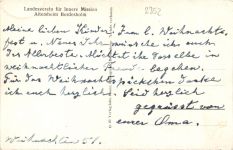 Landesverein für Innere Mission
Altersheim
2352
Meine lieben Kinder! Zum l. Weihnachts-
fest u. Neues Jahr wünsche ich euch
das Allerbeste. Möchtet ihr dasselbe in
weihnachtlicher Freude begehen.
Für das Weihnachtspäckchen danke
ich euch herzlich. Seid herzlich
gegrüsst von
eurer Oma.
Weihnachten 51.